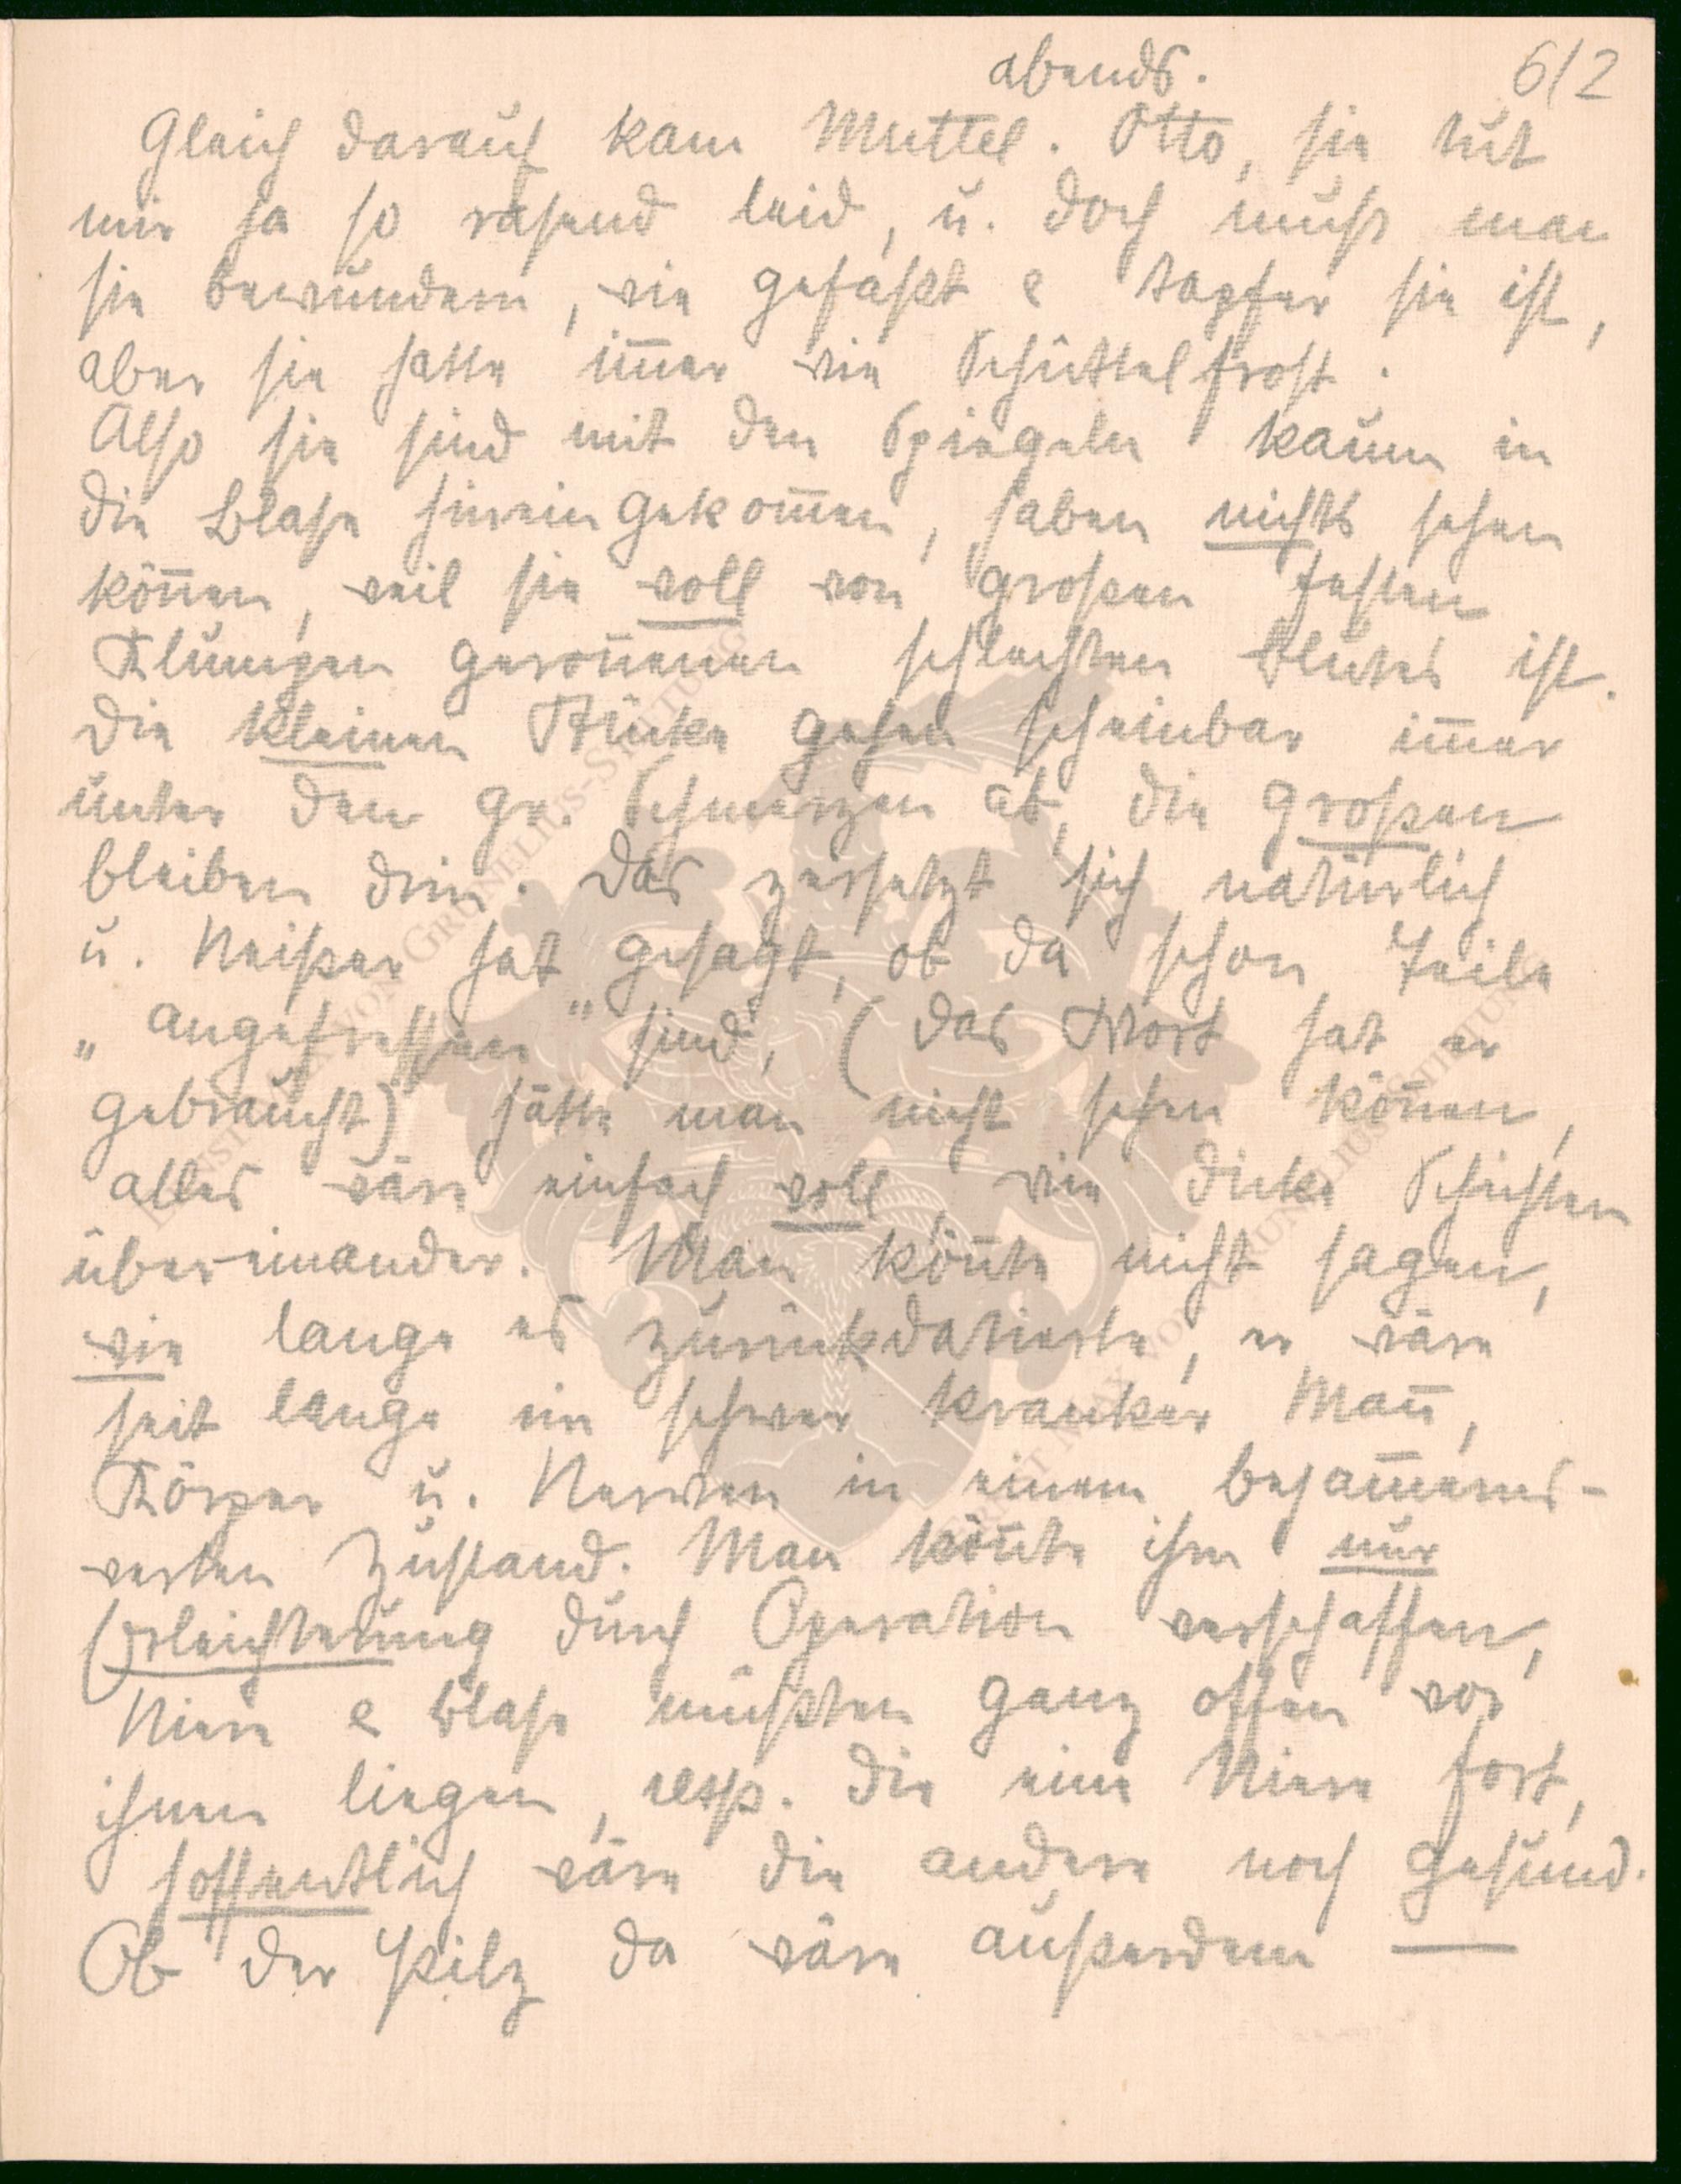 abends. 6/2
Gleich darauf kam Muttel. Otto, sie tut
mir ja so rasend leid, u. doch muß man
sie bewundern, wie gefaßt & tapfer sie ist,
aber sie hatte im̅er wie Schüttelfrost.
Also sie sind mit den Spiegeln kaum in
die Blase hineingekom̅en, haben nichts sehen
kön̅en, weil sie voll von großen festen
Klumpen geron̅enen schlechten Blutes ist.
Die kleinen Stücke gehen scheinbar im̅er
unter den gr. Schmerzen ab, die großen
bleiben drin. Das zersetzt sich natürlich
u. Neißer hat gesagt, ob da schon Teile
„angefressen" sind, (das Wort hat er
gebraucht) hätte man nicht sehen kön̅en,
alles wäre einfach voll, wie dicke Schichten
übereinander. Man kön̅te nicht sagen,
wie lange es zurückdatierte, er wäre
seit lange ein schwer kranker Man̅,
Körper u. Nerven in einem bejam̅erns-
werten Zustand. Man kön̅te ihm nur
Erleichterung durch Operation verschaffen,
Niere & Blase müßten ganz offen vor
ihnen liegen, resp. die eine Niere fort,
hoffentlich wäre die andere noch gesund.
Ob der Pilz da wäre außerdem —